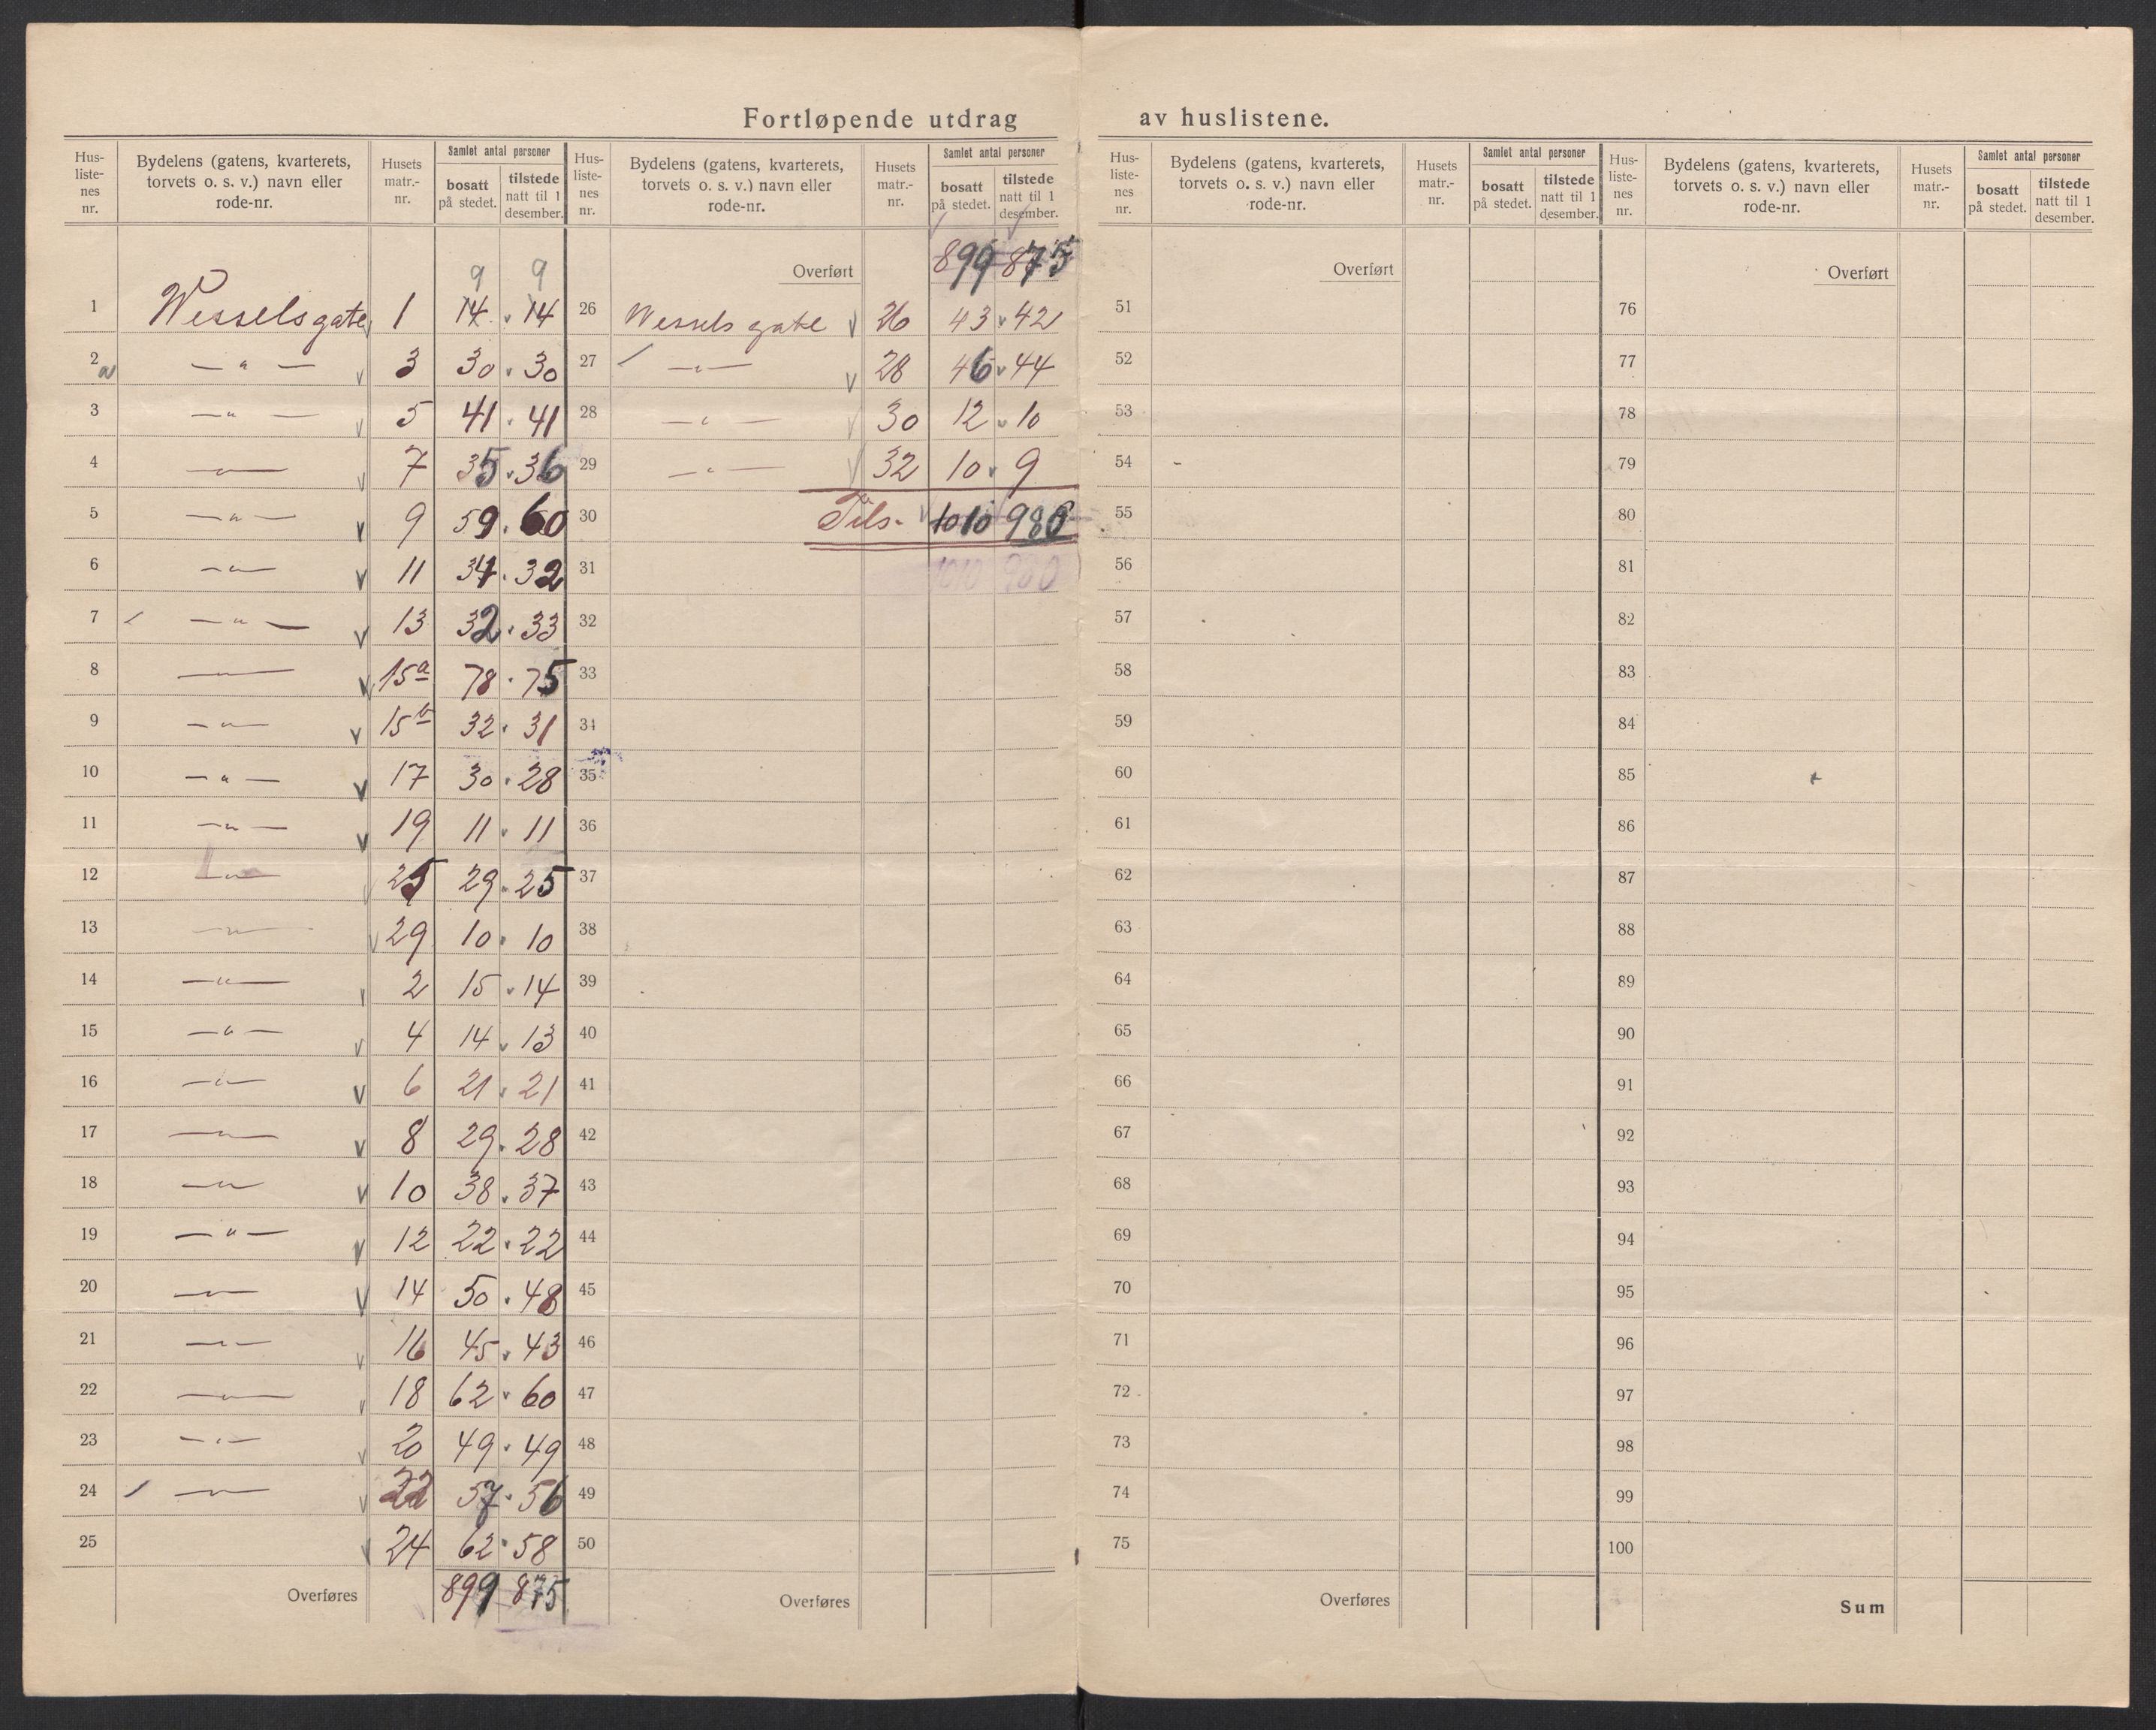 Fortløpende utdrag av huslistene.
Hus-listenes nr. | Bydelens (gatens, kvarterets, torvets o. s. v.) navn eller rode-nr. | Husets matr.-nr. | Samlet antal personer | bosatt på stedet. | tilstede natt til 1 desember.
9 9
1 Wesselsgate 1 14 14
2 — " — 3 30 30
3 — " — 5 41 41
4 — " — 7 35 36
5 — " — 9 59 60
6 — " — 11 34 32
7 — " — 13 32 33
8 — " — 15a 78 75
9 — " — 15b 32 31
10 — " — 17 30 28
11 — " — 19 11 11
12 — " — 25 29 25
13 — " — 29 10 10
14 — " — 2 15 14
15 — " — 4 14 13
16 — " — 6 21 21
17 — " — 8 29 28
18 — " — 10 38 37
19 — " — 12 22 22
20 — " — 14 50 48
21 — " — 16 45 43
22 — " — 18 62 60
23 — " — 20 49 49
24 — " — 22 57 56
25 24 62 58
Overføres 899 875
Hus-listenes nr. | Bydelens (gatens, kvarterets, torvets o. s. v.) navn eller rode-nr. | Husets matr.-nr. | Samlet antal personer | bosatt på stedet. | tilstede natt til 1 desember.
Overført 899 875
26 Wesselsgate 26 43 42
27 — " — 28 46 44
28 — " — 30 12 10
29 — " — 32 10 9
30 Tils. 1010 980
31 1010 980
32
33
34
35
36
37
38
39
40
41
42
43
44
45
46
47
48
49
50
Overføres
Hus-listenes nr. | Bydelens (gatens, kvarterets, torvets o. s. v.) navn eller rode-nr. | Husets matr.-nr. | Samlet antal personer | bosatt på stedet. | tilstede natt til 1 desember.
Overført
51
52
53
54
55
56
57
58
59
60
61
62
63
64
65
66
67
68
69
70
71
72
73
74
75
Overføres
Hus-listenes nr. | Bydelens (gatens, kvarterets, torvets o. s. v.) navn eller rode-nr. | Husets matr.-nr. | Samlet antal personer | bosatt på stedet. | tilstede natt til 1 desember.
Overført
76
77
78
79
80
81
82
83
84
85
86
87
88
89
90
91
92
93
94
95
96
97
98
99
100
Sum